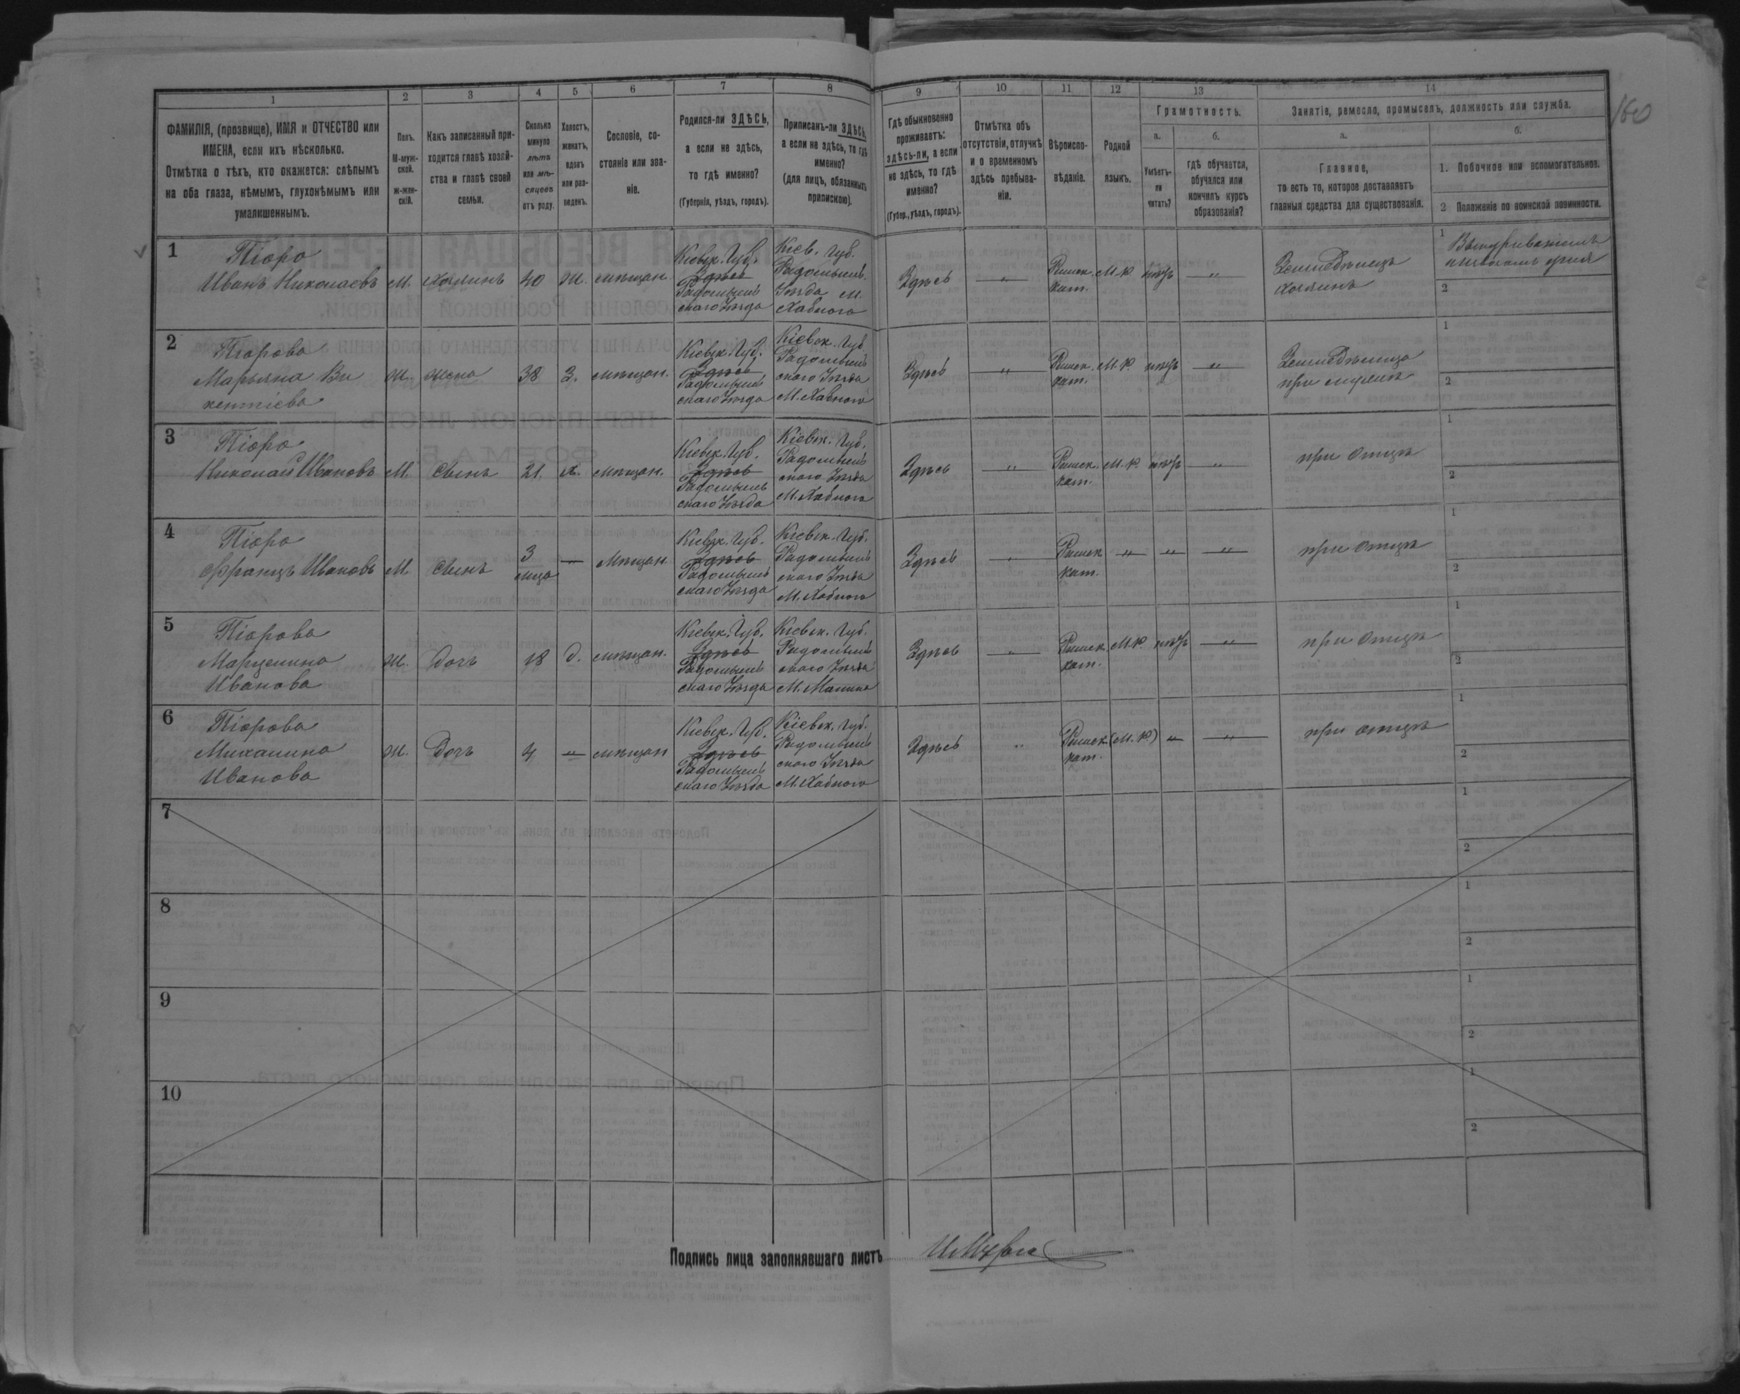 160
1 2 3 4 5 6 7 8 9 10 11 12 13 14
ФАМИЛІЯ, (прозвище), ИМЯ и ОТЧЕСТВО или
ИМЕНА, если ихъ нѣсколько.
Отмѣтка о тѣхъ, кто окажется: слѣпымъ
на оба глаза, нѣмымъ, глухонѣмымъ или
умалишеннымъ.
Полъ.
М-муж-
ской.
Ж-жен-
скій.
Какъ записанный при-
ходится главѣ хозяй-
ства и главѣ своей
семьи.
Сколько
минуло
лѣтъ
или мѣ-
сяцевъ
отъ роду.
Холостъ,
женатъ,
вдовъ
или раз-
веденъ.
Сословіе, со-
стояніе или зва-
ніе.
Родился-ли ЗДѢСЬ,
а если не здѣсь,
то гдѣ именно?
(Губернія, уѣздъ, городъ).
Приписанъ-ли ЗДѢСЬ,
а если не здѣсь, то гдѣ
именно?
(для лицъ, обязанныхъ
припискою).
Гдѣ обыкновенно
проживаетъ:
здѣсь-ли, а если
не здѣсь, то гдѣ
именно?
(Губер., уѣздъ, городъ).
Отмѣтка объ
отсутствіи, отлучкѣ
и о временномъ
здѣсь пребыва-
ніи.
Вѣроиспо-
вѣданіе.
Родной
языкъ.
Грамотность.
а.
Умѣетъ-
ли
читать?
б.
гдѣ обучается,
обучался или
кончилъ курсъ
образованія?
Занятіе, ремесло, промыселъ, должность или служба.
а.
Главное,
то есть то, которое доставляетъ
главныя средства для существованія.
б.
1. Побочное или вспомогательное.
2 Положеніе по воинской повинности.
1
Піоро
Иванъ Николаевъ М. Хозяинъ 40 Ж. мѣщан.
Кіевск. Губ.
Здѣсь
Радомысль
скаго Уѣзда
Кіев. Губ.
Радомысль
Уѣзда м.
Хабного
Здѣсь
Римск.
кат.
М. К
нѣтъ
Земледѣлецъ
Хозяинъ
1
2
2
Піорова
Марьяна Ви
кентіева
Ж. жена 38 З. мѣщан.
Кіевск. Губ.
Здѣсь
Радомысль
скаго Уѣзда
Кіевск. Губ
Радомысль
скаго Уѣзда
М. Хабного
Здѣсь
Римск.
кат.
М. К
нѣтъ
Земледѣлица
при мужѣ
1
2
3
Піоро
Николай Ивановъ М. Сынъ 21. Х. мѣщан.
Кіевск. Губ.
Здѣсь
Радомысль
скаго Уѣзда
Кіевск. Губ.
Радомысль
скаго Уѣзда
М. Хабного
Здѣсь
Римск.
кат.
М. К
нѣтъ
при отцѣ
1
2
4
Піоро
Францъ Ивановъ М. Сынъ
3
мѣца
— Мѣщан.
Кіевск. Губ.
Здѣсь
Радомысль
скаго Уѣзда
Кіевск. Губ.
Радомысль
скаго Уѣзда
М. Хабного
Здѣсь
Римск
кат.
при отцѣ
1
2
5
Піорова
Марцелина
Иванова
Ж. Дочь 18 д. мѣщан.
Кіевск. Губ.
Здѣсь
Радомысль
скаго Уѣзда
Кіевск. Губ.
Радомысль
скаго Уѣзда
М. Малина
Здѣсь
Римск.
кат.
М. К
нѣтъ
при отцѣ
1
2
6
Піорова
Михалина
Иванова
Ж. Дочь 4 мѣщан
Кіевск. Губ.
Здѣсь
Радомысль
скаго Уѣзда
Кіевск. Губ.
Радомысль
скаго Уѣзда
М. Хабного
Здѣсь
Римск.
кат.
(М. К)
при отцѣ
1
2
7
1
2
8
1
2
9
1
2
10
1
2
Подпись лица заполнявшаго листъ